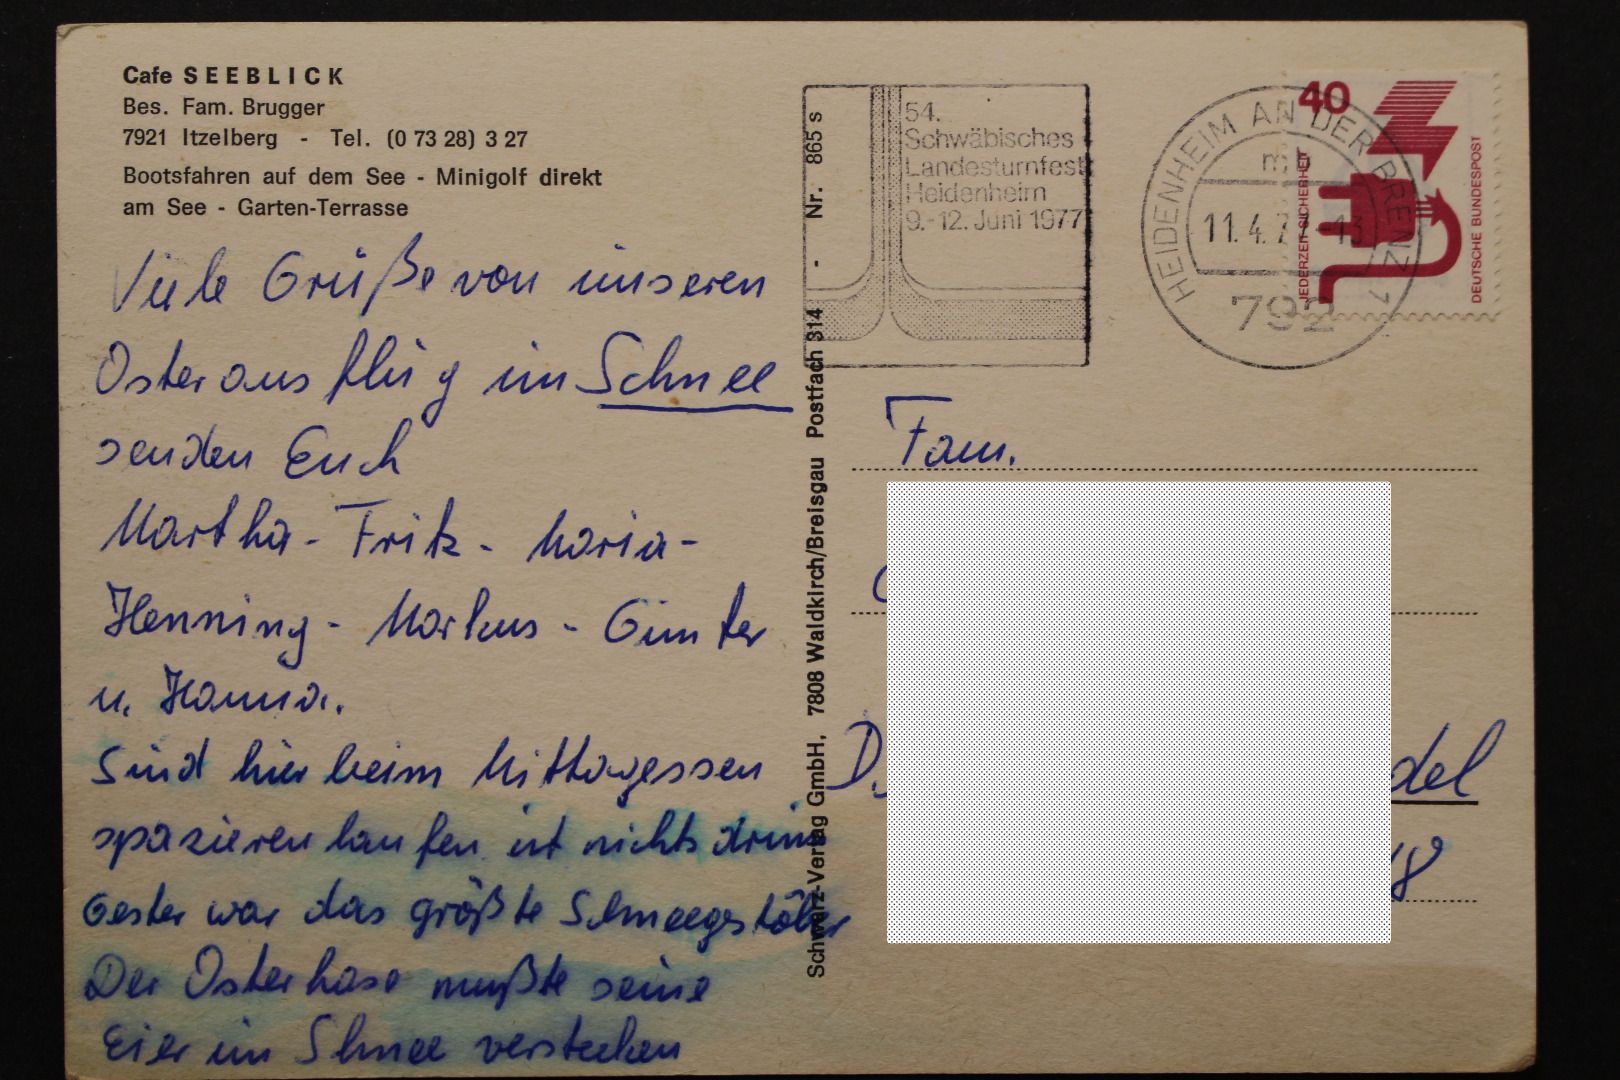 Cafe SEEBLICK
Bes. Fam. Brugger
7921 Itzelberg - Tel. (0 73 28) 3 27
Bootsfahren auf dem See - Minigolf direkt
am See - Garten-Terrasse
Viele Grüße von unseren
Osterausflug im Schnee
senden Euch
Martha - Fritz - Maria -
Henning - Markus - Günter
u. Hanna.
Sind hier beim Mittagessen
spazieren laufen ist nichts drinn
Gester war das größte Schneegestöber
Der Osterhase mußte seine
Eier im Schnee verstecken
Schwarz-Verlag GmbH, 7808 Waldkirch/Breisgau Postfach 314 - Nr. 865 s
54.
Schwäbisches
Landesturnfest
Heidenheim
9.-12. Juni 1977
HEIDENHEIM AN DER BRENZ 1
11.4.77-13
792
40
JEDERZEIT SICHERHEIT
DEUTSCHE BUNDESPOST
Fam.
D. del
18